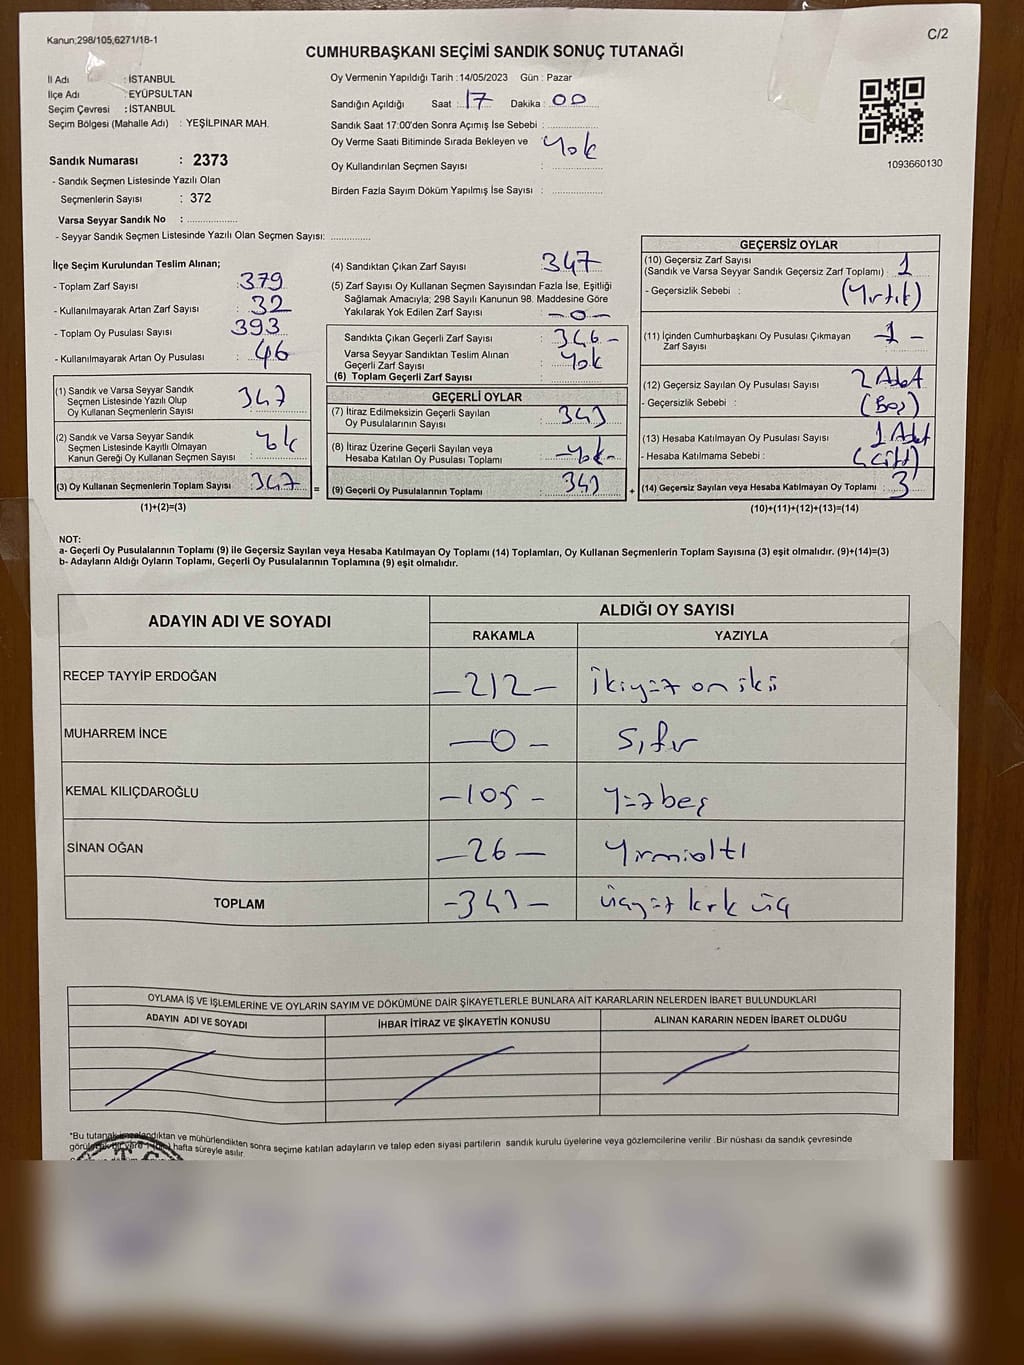 Kanun,298/105,6271/18-1
C/2
CUMHURBAŞKANI SEÇİMİ SANDIK SONUÇ TUTANAĞI
İl Adı : İSTANBUL
İlçe Adı : EYÜPSULTAN
Seçim Çevresi : İSTANBUL
Seçim Bölgesi (Mahalle Adı) : YEŞİLPINAR MAH.
Sandık Numarası : 2373
- Sandık Seçmen Listesinde Yazılı Olan
Seçmenlerin Sayısı : 372
Varsa Seyyar Sandık No : ..................
- Seyyar Sandık Seçmen Listesinde Yazılı Olan Seçmen Sayısı: ..............
Oy Vermenin Yapıldığı Tarih : 14/05/2023 Gün : Pazar
Sandığın Açıldığı Saat : 17 Dakika : 00
Sandık Saat 17:00'den Sonra Açımış İse Sebebi : ..................
Oy Verme Saati Bitiminde Sırada Bekleyen ve Yok
Oy Kullandırılan Seçmen Sayısı : ..................
Birden Fazla Sayım Döküm Yapılmış İse Sayısı : ..................
1093660130
İlçe Seçim Kurulundan Teslim Alınan;
- Toplam Zarf Sayısı : 379
- Kullanılmayarak Artan Zarf Sayısı : 32
- Toplam Oy Pusulası Sayısı : 393
- Kullanılmayarak Artan Oy Pusulası : 46
(1) Sandık ve Varsa Seyyar Sandık
Seçmen Listesinde Yazılı Olup
Oy Kullanan Seçmenlerin Sayısı : 347
(2) Sandık ve Varsa Seyyar Sandık
Seçmen Listesinde Kayıtlı Olmayan
Kanun Gereği Oy Kullanan Seçmen Sayısı : Yok
(3) Oy Kullanan Seçmenlerin Toplam Sayısı : 347 =
(1)+(2)=(3)
(4) Sandıktan Çıkan Zarf Sayısı : 347
(5) Zarf Sayısı Oy Kullanan Seçmen Sayısından Fazla İse, Eşitliği
Sağlamak Amacıyla; 298 Sayılı Kanunun 98. Maddesine Göre
Yakılarak Yok Edilen Zarf Sayısı : -0-
Sandıkta Çıkan Geçerli Zarf Sayısı : 346 -
Varsa Seyyar Sandıktan Teslim Alınan
Geçerli Zarf Sayısı : Yok
(6) Toplam Geçerli Zarf Sayısı :
GEÇERLİ OYLAR
(7) İtiraz Edilmeksizin Geçerli Sayılan
Oy Pusulalarının Sayısı : 343
(8) İtiraz Üzerine Geçerli Sayılan veya
Hesaba Katılan Oy Pusulası Toplamı : -Yok-
(9) Geçerli Oy Pusulalarının Toplamı : 343 +
GEÇERSİZ OYLAR
(10) Geçersiz Zarf Sayısı
(Sandık ve Varsa Seyyar Sandık Geçersiz Zarf Toplamı) : 1
- Geçersizlik Sebebi : (Yırtık)
(11) İçinden Cumhurbaşkanı Oy Pusulası Çıkmayan
Zarf Sayısı : -1 -
(12) Geçersiz Sayılan Oy Pusulası Sayısı : 2 Adet
- Geçersizlik Sebebi : (Boş)
(13) Hesaba Katılmayan Oy Pusulası Sayısı : 1 Adet
- Hesaba Katılmama Sebebi : (Çift)
(14) Geçersiz Sayılan veya Hesaba Katılmayan Oy Toplamı : 3
(10)+(11)+(12)+(13)=(14)
NOT:
a- Geçerli Oy Pusulalarının Toplamı (9) ile Geçersiz Sayılan veya Hesaba Katılmayan Oy Toplamı (14) Toplamları, Oy Kullanan Seçmenlerin Toplam Sayısına (3) eşit olmalıdır. (9)+(14)=(3)
b- Adayların Aldığı Oyların Toplamı, Geçerli Oy Pusulalarının Toplamına (9) eşit olmalıdır.
ADAYIN ADI VE SOYADI
ALDIĞI OY SAYISI
RAKAMLA YAZIYLA
RECEP TAYYİP ERDOĞAN -212- ikiyüz on iki
MUHARREM İNCE -0- Sıfır
KEMAL KILIÇDAROĞLU -105- Yüzbeş
SİNAN OĞAN -26- Yirmialtı
TOPLAM -343- üçyüz kırk üç
OYLAMA İŞ VE İŞLEMLERİNE VE OYLARIN SAYIM VE DÖKÜMÜNE DAİR ŞİKAYETLERLE BUNLARA AİT KARARLARIN NELERDEN İBARET BULUNDUKLARI
ADAYIN ADI VE SOYADI İHBAR İTİRAZ VE ŞİKAYETİN KONUSU ALINAN KARARIN NEDEN İBARET OLDUĞU
*Bu tutanak imzalandıktan ve mühürlendikten sonra seçime katılan adayların ve talep eden siyasi partilerin sandık kurulu üyelerine veya gözlemcilerine verilir .Bir nüshası da sandık çevresinde
hafta süreyle asılır.